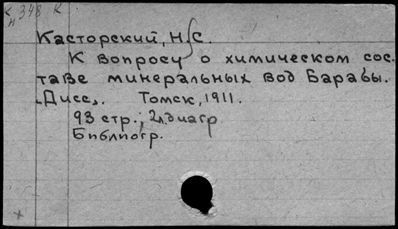 К 348 К
н
Касторский, Н.С.
К вопросу о химическом сос-
таве минеральных вод Барабы.
"Дисс". Томск, 1911.
93 стр.; 2л.диагр
Библиогр.